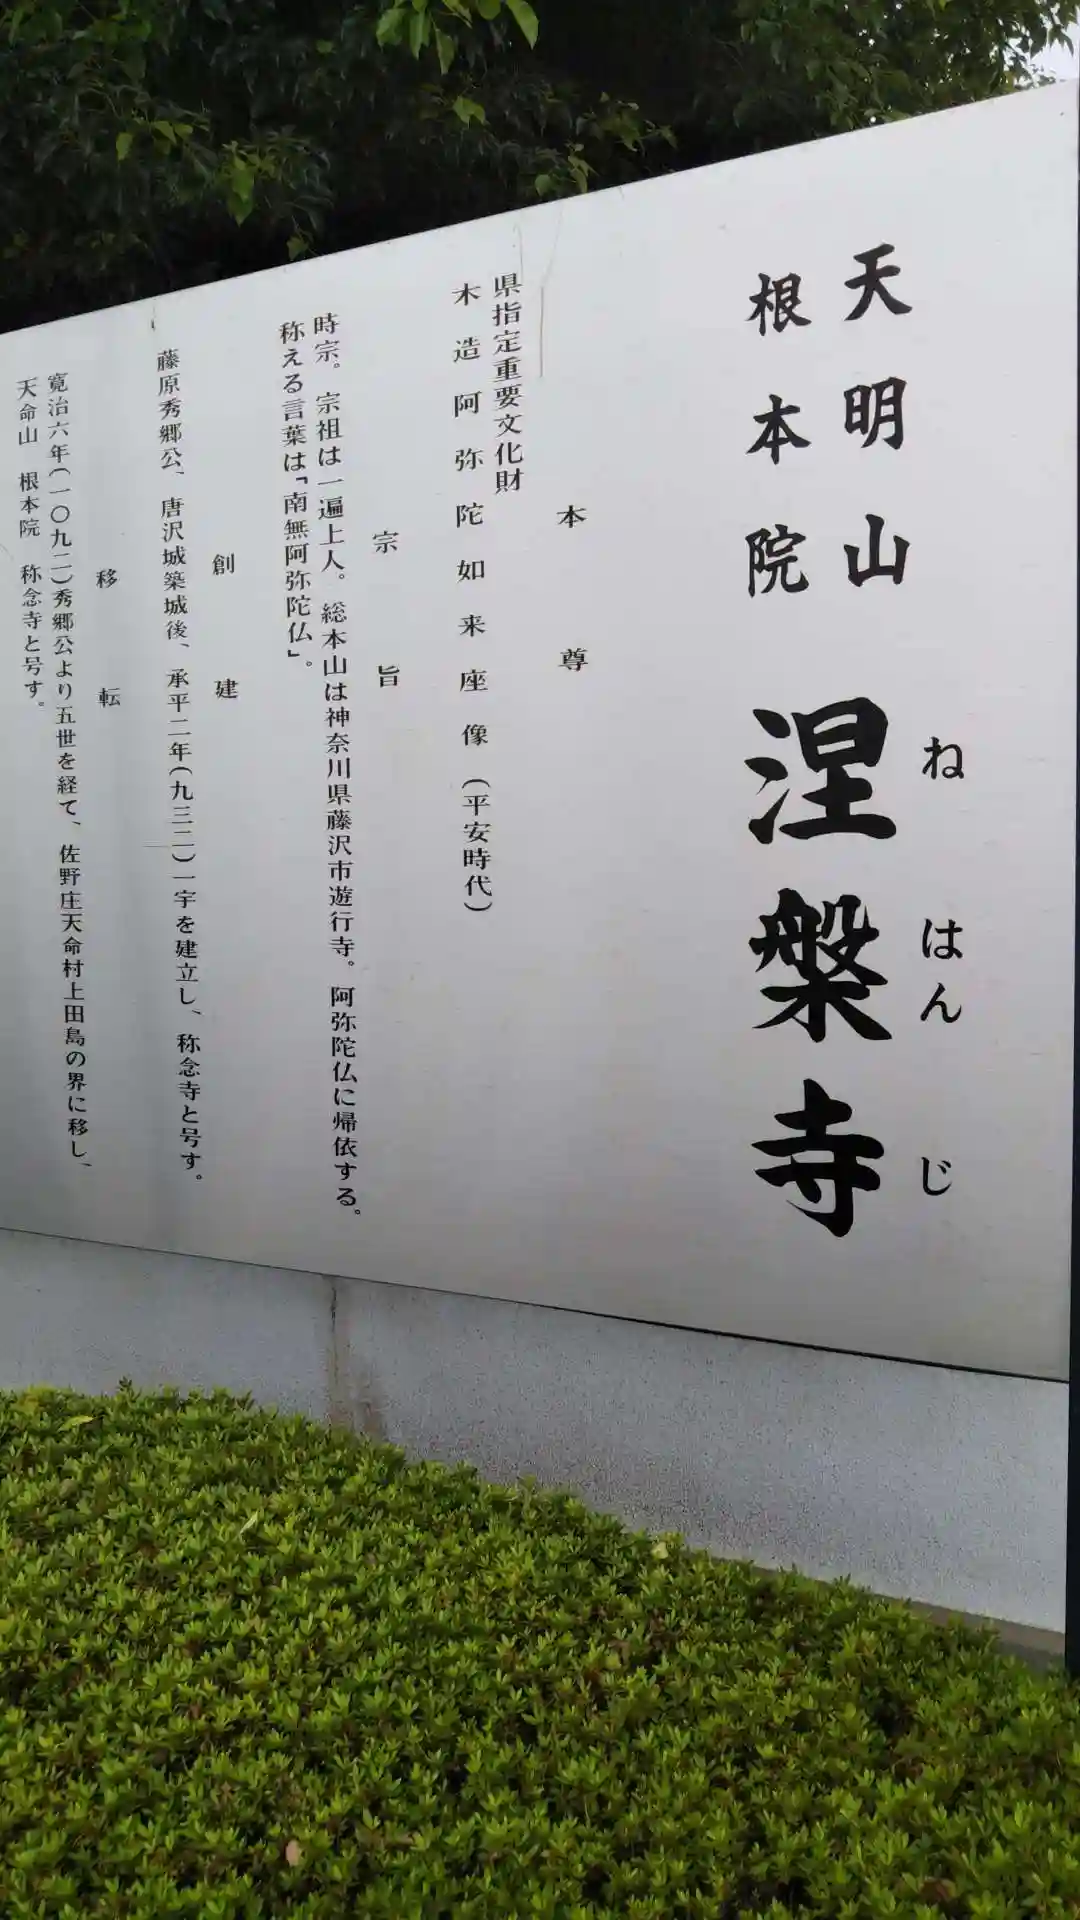 天明山
根本院
涅槃寺
ねはんじ
本尊
県指定重要文化財
木造阿弥陀如来座像(平安時代)
宗旨
時宗。宗祖は一遍上人。総本山は神奈川県藤沢市遊行寺。阿弥陀仏に帰依する。
称える言葉は「南無阿弥陀仏」。
創建
藤原秀郷公、唐沢城築城後、承平二年(九三二)一宇を建立し、称念寺と号す。
移転
寛治六年(一〇九二)秀郷公より五世を経て、佐野庄天命村上田島の界に移し、
天命山 根本院 称念寺と号す。